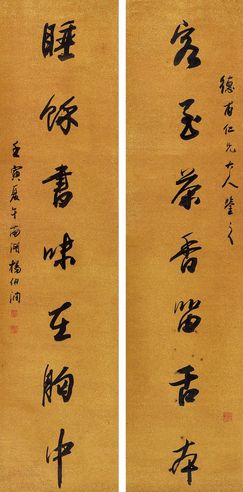 德甫仁兄大人鑒之
客至茶香留舌本
睡餘書味在胸中
壬寅夏午南湖楊伯潤